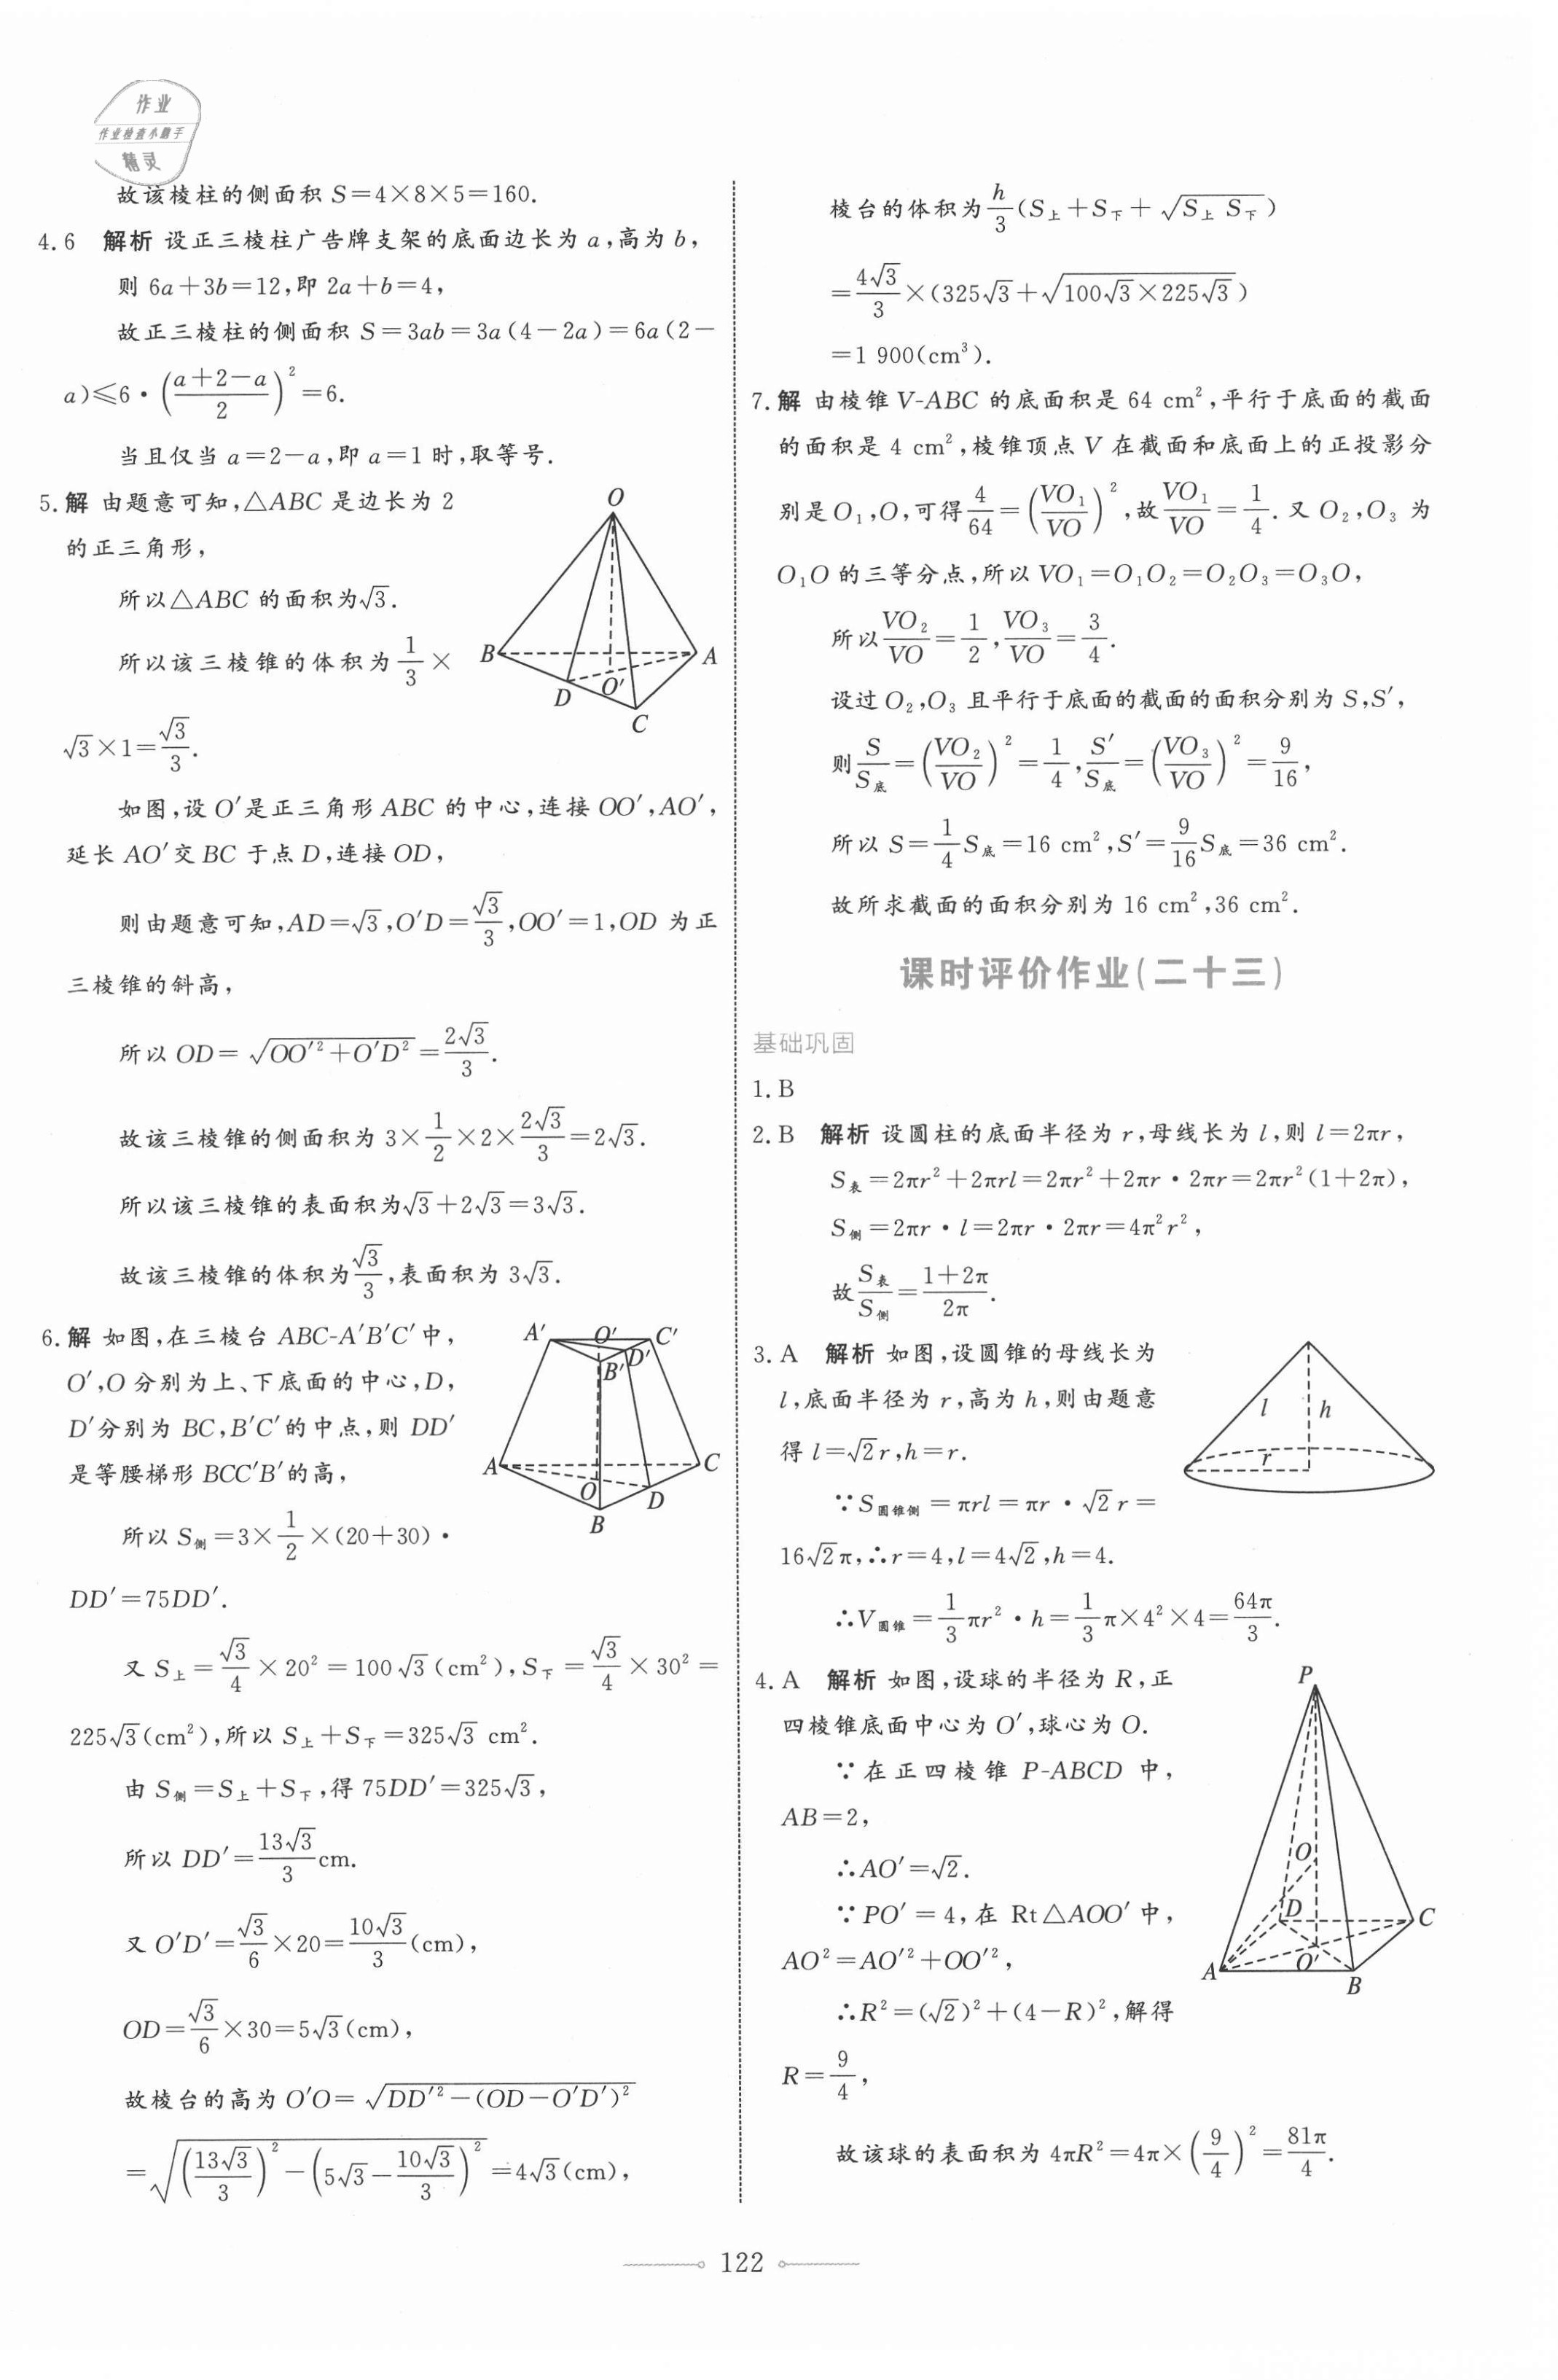 作业
作业检查小助手
精灵
故该棱柱的侧面积 S=4×8×5=160.
4. 6 解析 设正三棱柱广告牌支架的底面边长为 a,高为 b,
则 6a+3b=12,即 2a+b=4,
故正三棱柱的侧面积 S=3ab=3a(4-2a)=6a(2-
a)≤6·((a+2-a)/2)²=6.
当且仅当 a=2-a,即 a=1 时,取等号.
5. 解 由题意可知,△ABC 是边长为 2
的正三角形,
所以△ABC 的面积为√3.
所以该三棱锥的体积为 1/3 ×
√3×1=√3/3.
O
B
A
D
O′
C
如图,设 O′是正三角形 ABC 的中心,连接 OO′,AO′,
延长 AO′交 BC 于点 D,连接 OD,
则由题意可知,AD=√3,O′D=√3/3,OO′=1,OD 为正
三棱锥的斜高,
所以 OD=√(OO′²+O′D²)=2√3/3.
故该三棱锥的侧面积为 3×1/2×2×2√3/3=2√3.
所以该三棱锥的表面积为√3+2√3=3√3.
故该三棱锥的体积为√3/3,表面积为 3√3.
6. 解 如图,在三棱台 ABC-A′B′C′中,
O′,O 分别为上、下底面的中心,D,
D′分别为 BC,B′C′的中点,则 DD′
是等腰梯形 BCC′B′的高,
所以 S侧=3×1/2×(20+30)·
DD′=75DD′.
A′
O′
C′
B′
D′
A
C
O
D
B
又 S上=√3/4×20²=100√3(cm²),S下=√3/4×30²=
225√3(cm²),所以 S上+S下=325√3 cm².
由 S侧=S上+S下,得 75DD′=325√3,
所以 DD′=13√3/3 cm.
又 O′D′=√3/6×20=10√3/3(cm),
OD=√3/6×30=5√3(cm),
故棱台的高为 O′O=√(DD′²-(OD-O′D′)²)
=√((13√3/3)²-(5√3-10√3/3)²)=4√3(cm),
棱台的体积为 h/3(S上+S下+√(S上 S下))
=4√3/3×(325√3+√(100√3×225√3))
=1 900(cm³).
7. 解 由棱锥 V-ABC 的底面积是 64 cm²,平行于底面的截面
的面积是 4 cm²,棱锥顶点 V 在截面和底面上的正投影分
别是 O₁,O,可得 4/64=(VO₁/VO)²,故 VO₁/VO=1/4.又 O₂,O₃ 为
O₁O 的三等分点,所以 VO₁=O₁O₂=O₂O₃=O₃O,
所以 VO₂/VO=1/2,VO₃/VO=3/4.
设过 O₂,O₃ 且平行于底面的截面的面积分别为 S,S′,
则 S/S底=(VO₂/VO)²=1/4,S′/S底=(VO₃/VO)²=9/16,
所以 S=1/4 S底=16 cm²,S′=9/16 S底=36 cm².
故所求截面的面积分别为 16 cm²,36 cm².
课时评价作业(二十三)
基础巩固
1. B
2. B 解析 设圆柱的底面半径为 r,母线长为 l,则 l=2πr,
S表=2πr²+2πrl=2πr²+2πr·2πr=2πr²(1+2π),
S侧=2πr·l=2πr·2πr=4π²r²,
故 S表/S侧=(1+2π)/2π.
3. A 解析 如图,设圆锥的母线长为
l,底面半径为 r,高为 h,则由题意
得 l=√2r,h=r.
∵S圆锥侧=πrl=πr·√2r=
16√2π,∴r=4,l=4√2,h=4.
∴V圆锥=1/3πr²·h=1/3π×4²×4=64π/3.
l
h
r
4. A 解析 如图,设球的半径为 R,正
四棱锥底面中心为 O′,球心为 O.
∵在正四棱锥 P-ABCD 中,
AB=2,
∴AO′=√2.
∵PO′=4,在 Rt△AOO′中,
AO²=AO′²+OO′²,
∴R²=(√2)²+(4-R)²,解得
R=9/4,
P
O
D
C
A
O′
B
故该球的表面积为 4πR²=4π×(9/4)²=81π/4.
122